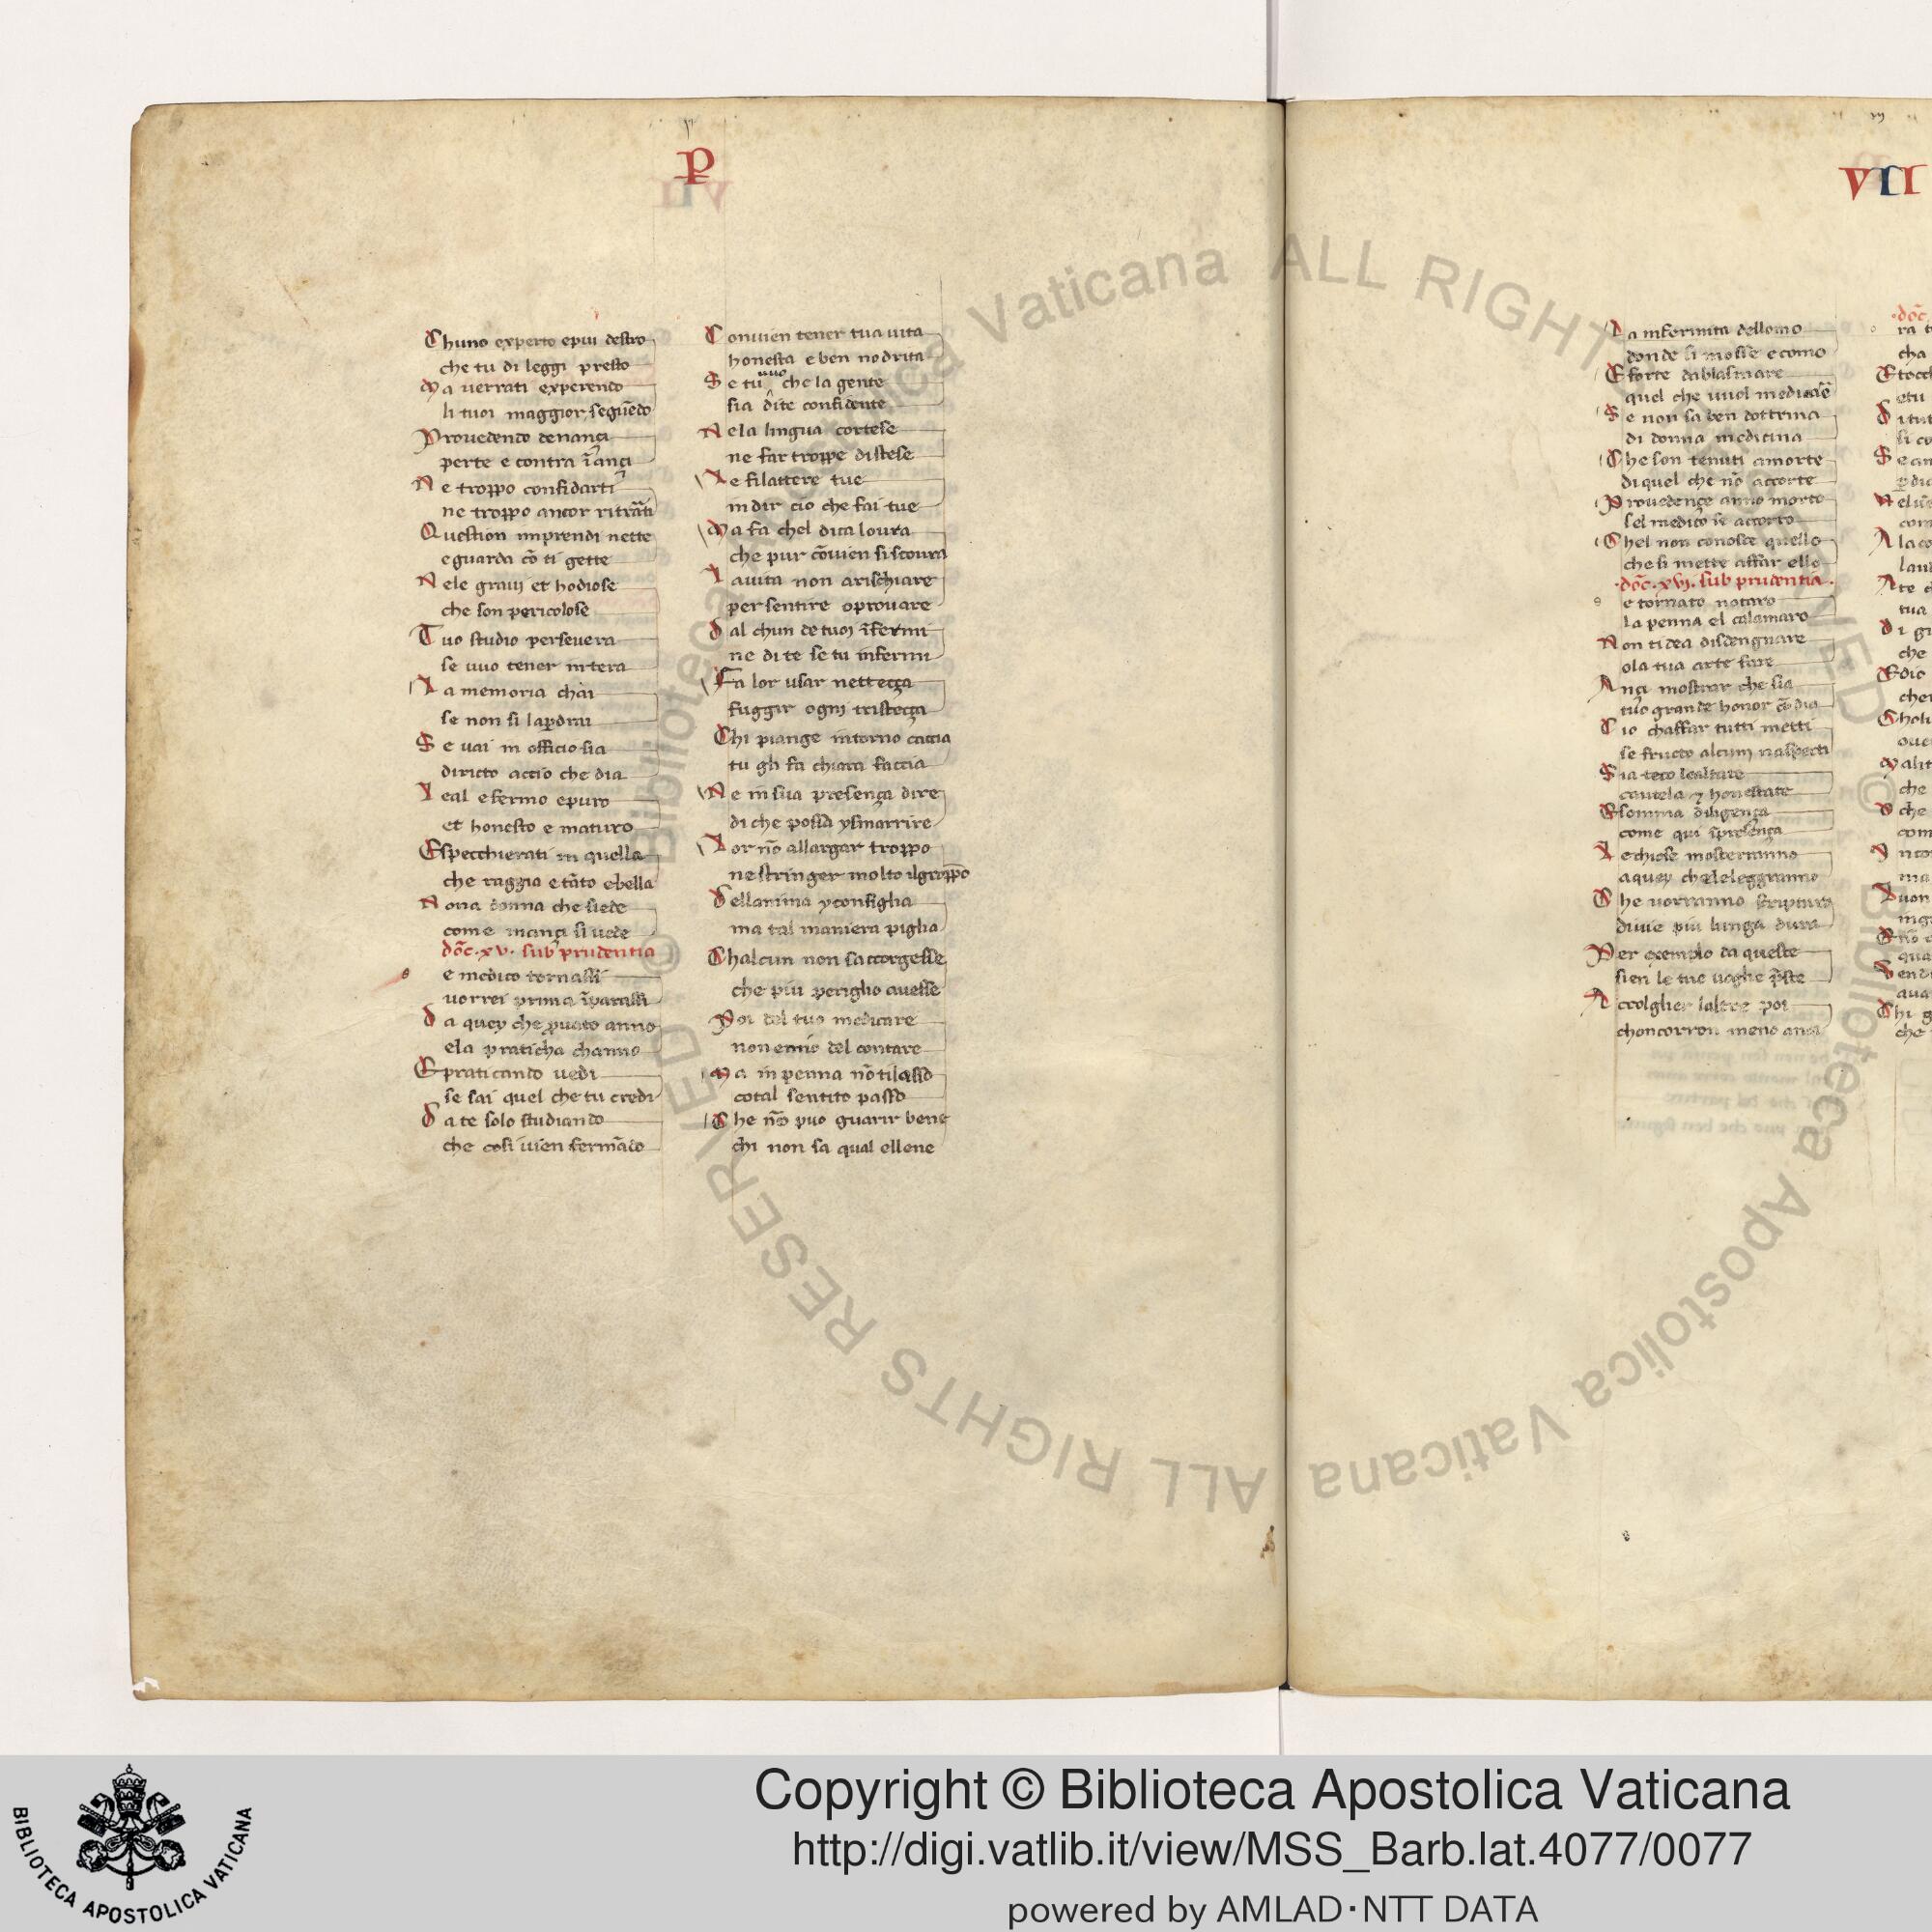 P
Chuno experto epiu destro
che tu di leggi presto
Ma uerrati experendo
li tuoi maggior seguēdo
Prouedendo denançi
perte e contra īançi
Ne troppo confidarti
ne troppo ancor ritrāti
Question imprendi nette
eguarda cō ti gette
Nele graui et hodiose
che son pericolose
Tuo studio perseuera
se uuo tener intera
La memoria chai
se non si laꝑdrai
Se uai in officio sia
diricto accio che dia
Leal efermo epuro
et honesto e maturo
Especchierati in quella
che raggia e tāto ebella
Nona donna che siede
come inançi si uede
doc̄. xv. sub prudentia
e medico tornassi
uorrei prima īparassi
da quey che ꝓuato anno
ela praticha channo
Epraticando uedi
se sai quel che tu credi
da te solo studiando
che cosi uien fermādo
Conuien tener tua uita
honesta e ben nodrita
Se tu uuo che la gente
sia dite confidente
Nela lingua cortese
ne far troppe distese
Ne filattere tue
indir cio che fai tue
Ma fa chel dica loura
che pur cōuien si scoura
Lauita non arischiare
per sentire oprouare
dal chun de tuoi īfermi
ne di te se tu infermi
Fa lor usar netteçça
fuggir ogni tristeçça
Chi piange intorno caccia
tu gli fa chiara faccia
Ne in sua presença dire
di che possa ysmarrire
Lor nō allargar troppo
ne stringer molto ilgroppo
dellanima yconsiglia
ma tal maniera piglia
Chalcun non saccorgesse
che piu periglio auesse
Poi del tuo medicare
non emio del contare
Ma in penna nō ti lasso
cotal sentito passo
Che nō puo guarir bene
chi non sa qual ellene
VII
La infermita dellomo
donde si mosse ecomo
Eforte dablasmare
quel che uuol medicare
Se non sa ben dottrina
di donna medicina
Che son tenuti amorte
di quel che nō accorte
Prouedençe anno morto
sel medico se accorto
Chel non conosce quello
che si mette affar ello
doc̄. xvi. sub prudentia.
e tornato notaro
la penna el calamaro
Non ti dea disdengnare
ola tua arte fare
Ançi mostrar che sia
tuo grande honor
Cio chaffar tutti metti
se fructo alcun naspecti
Sia teco lealtate
cautela honestate
Esomma diligença
come qui īpresença
Lechiose mosterranno
aquey che leleggranno
Che uorranno scriptura
diuie piu lunga dura
Per exemplo da queste
sien le tue uoghe p̄ste
Accolglier laltre poi
choncorron meno
doc̄.
ra
cha
etu
si
che
tua
che
Copyright © Biblioteca Apostolica Vaticana
http://digi.vatlib.it/view/MSS_Barb.lat.4077/0077
powered by AMLAD·NTT DATA
BIBLIOTECA APOSTOLICA VATICANA